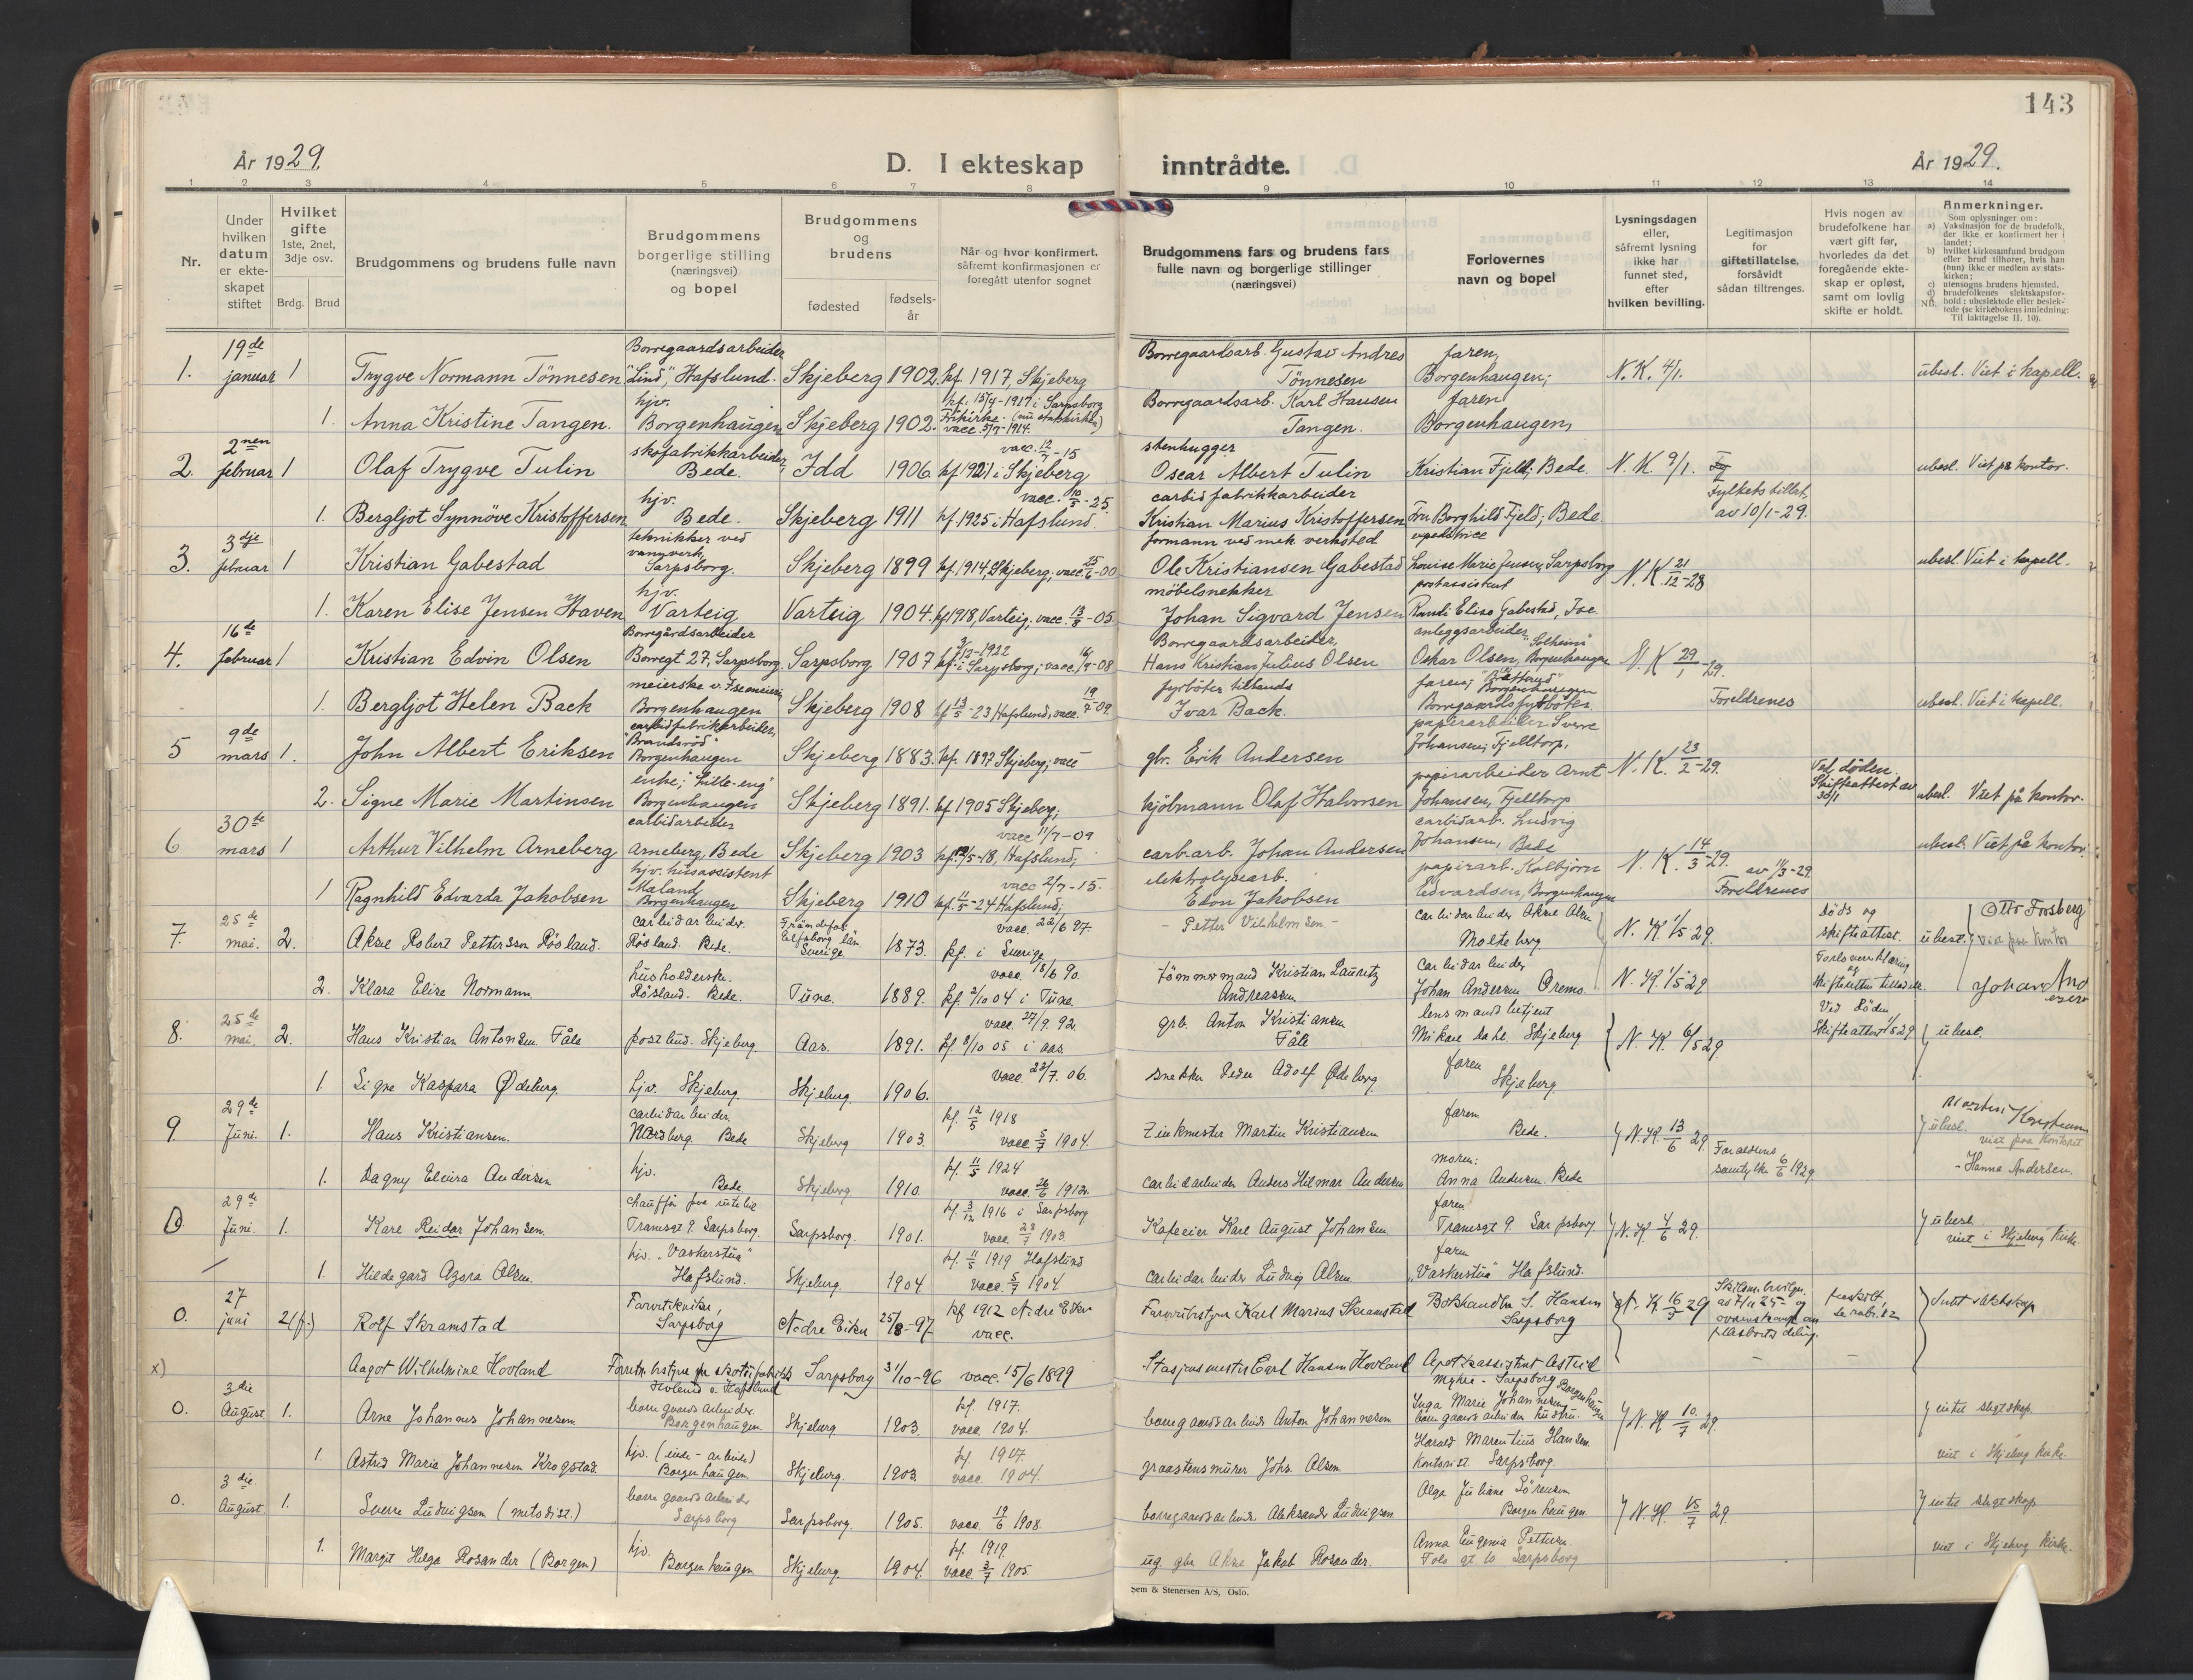 143
År 1929.
D. I ekteskap inntrådte.
År 1929
1 2 3 4 5 6 7 8 9 10 11 12 13 14
Nr.
Under hvilken datum er ekte- skapet stiftet
Hvilket gifte 1ste, 2net, 3dje osv.
Brdg. Brud
Brudgommens og brudens fulle navn
Brudgommens borgerlige stilling (næringsvei) og bopel
Brudgommens og brudens
fødested
fødsels- år
Når og hvor konfirmert, såfremt konfirmasjonen er foregått utenfor sognet
Brudgommens fars og brudens fars fulle navn og borgerlige stillinger (næringsvei)
Forlovernes navn og bopel
Lysningsdagen eller, såfremt lysning ikke har funnet sted, efter hvilken bevilling.
Legitimasjon for giftetillatelse, forsåvidt sådan tiltrenges.
Hvis nogen av brudefolkene har vært gift før, hvorledes da det foregående ekte- skap er opløst, samt om lovlig skifte er holdt.
Anmerkninger.
Som oplysninger om:
a) Vaksinasjon for de brudefolk, der ikke er konfirmert her i landet;
b) hvilket kirkesamfund brudgom eller brud tilhører, hvis han (hun) ikke er medlem av stats- kirken;
c) utensogns brudens hjemsted.
d) brudefolkenes slektskapsfor- hold: ubeslektede eller beslek- tede (se kirkebokens innledning: Til iakttagelse II. 10).
NB.
19de Borregaardsarbeider Borregaardsarb. Gustav Andres faren,
1. januar 1 Trygve Normann Tönnesen "Lind", Hafslund. Skjeberg 1902. kf. 1917, Skjeberg Tönnesen Borgenhaugen; N. K. 4/1. ubesl. Viet i kapell.
hjv. kf. 15/4-1917 i Sarpsborg Borregaardsarb. Karl Hansen faren
1. Anna Kristine Tangen. Borgenhaugen Skjeberg 1902. Frikirke (nu statskirke) vacc. 5/7-1914. Tangen. Borgenhaugen,
2nen skofabrikkarbeider, vacc. 12/7-15 stenhugger
2. februar 1 Olaf Trygve Tulin Bede. Idd 1906. kf 1921 i Skjeberg Oscar Albert Tulin Kristian Fjeld, Bede. N. K. 9/1. ubesl. Viet på kontor.
hjv. vacc. 10/5-25. carbidfabrikkarbeider Fylkets tillat.
1. Bergljot Synnöve Kristoffersen Bede. Skjeberg 1911 kf. 1925 i Hafslund. Kristian Marius Kristoffersen Fru Borghild Fjeld, Bede. av 10/1-29.
3dje tekniker ved formann ved mek. verksted expeditrice
3. februar 1 Kristian Gabestad Sarpsborg. Skjeberg 1899 kf. 1914, Skjeberg; vacc. 25/6-00 Ole Kristiansen Gabestad Louise Marie Jensen, Sarpsborg N. K. 21/12-28 ubesl. Viet i kapell.
hjv. möbelsnekker postassistent
1. Karen Elise Jensen Haven Varteig Varteig 1904. kf. 1918, Varteig; vacc. 13/8-05 Johan Sigvard Jensen Randi Elise Gabestad, Ise
16de Borregårdsarbeider 3/12-1922 Borregaardsarbeider, anleggsarbeider "Solheim"
4. februar 1 Kristian Edvin Olsen Borregt 27, Sarpsborg. Sarpsborg 1907 kf. i Sarpsborg; vacc. Hans Kristian Julius Olsen Oskar Olsen, Borgenhaugen N. K 29/1-29.
meierske v. Isemeieri fyrböter tillands faren; Borgenhaugen
1. Bergljot Helen Back Borgenhaugen Skjeberg 1908 kf 13/5-23 Hafslund; vacc. 19/7-09. Ivar Back. Borregaardsfyrböter Foreldrenes ubesl. Viet i kapell.
9de carbidfabrikarbeider, "Brandsröd" papirarbeider Sverre
5 mars 1. John Albert Eriksen Borgenhaugen Skjeberg 1883. kf. 1897 Skjeberg; vacc gbr. Erik Andersen Johansen; Fjelltorp. N. K. 23/2-29.
enke; "Lille-eng" papirarbeider Arnt Ved döden. Skifteattest av 30/1
2. Signe Marie Martinsen Borgenhaugen Skjeberg 1891. kf 1905 Skjeberg; kjöbmann Olaf Halvorsen Johansen, Fjelltorp ubesl. Viet på kontor.
30te carbidarbeider vacc 11/7-09 carbidarb. Ludvig
6 mars 1 Arthur Vilhelm Arneberg Arneberg, Bede Skjeberg 1903 Hafslund; carb.arb. Johan Andersen Johansen, Bede N. K. 14/3-29. ubesl. Viet på kontor.
hjv. husassistent vacc 2/7-15. elektrolysearb. papirarb. Kolbjörn av 11/3-29
1 Ragnhild Edvarda Jakobsen Maland Borgenhaugen Skjeberg 1910 kf. 11/5-24 Hafslund; Edon Jakobsen Edvardsen, Borgenhaugen Foreldrenes
25de carbidarbeider. vacc. 22/6 97. Carbidarbeider Aksne Olsen döds og Otto Forsberg
7. mai. 2. Aksne Robert Pettersson Rösland. Rösland. Bede. Elfsborg län Sverige 1873. kf. i Sverige - Petter Vilhelmsen - Molteberg N. K. 1/5 29. skifteattest. ubesl. viet paa kontor
Husholderske. vacc. 18/6 90. Tömmermand Kristian Lauritz Carbidarbeider
2. Klara Elise Normann. Rösland. Bede. Tune. 1889. kf. 2/10 04 i Tune Andreassen Johan Andersen Oremo. N. K. 1/5 29
25de vacc. 27/9. 92. grb. Anton Kristiansen lensmandsbetjent Ved Döden
8. mai. 2. Hans Kristian Antonsen Fåle postbud. Skjeberg. Aas. 1891. kf. 8/10 05 i Aas. Fåle Mikael Dahl. Skjeberg N. K. 6/5 29 Skifteattest ubesl.
vacc. 22/7. 06. faren
1. Signe Kaspara Ødeberg hjv. Skjeberg Skjeberg. 1906. Snekker Peder Adolf Ødeberg Skjeberg
29de carbidarbeider kf. 12/5 1918 faren
9. Juni. 1. Hans Kristiansen. Nordberg. Bede Skjeberg 1903. vacc. 5/7 1904. Zinkmester Martin Kristiansen Bede. N. K. 13/6 29. ubesl. viet paa kontoret
hjv. kf. 11/5 1924 moren: Forældrenes samtykke 6/6 1929
1. Dagny Elvira Andersen Bede Skjeberg 1910. vacc. 26/6 1912. Carbidarbeider Anders Hilmar Andersen Anna Andersen Bede - Hanna Andersen.
29de chauffør paa rutebil kf. 3/12 1916 i Sarpsborg faren
Juni. 1. Kåre Reidar Johansen. Tramsgt 9. Sarpsborg. Sarpsborg. 1901. vacc. 23/7 1903. Kafeeier Karl August Johansen Tramsgt 9 Sarpsborg N. K 4/6 29. ubesl. viet i Skjeberg Kirke.
hjv. "Vaskerstua" kf. 11/5 1919 Hafslund faren
1. Hildegard Agora Olsen. Hafslund. Skjeberg. 1904 vacc. 5/7 1904. Carbidarbeider Ludvig Olsen. "Vaskerstua" Hafslund.
27 kf 1912 Nedre Eiker Skilsm.bevilgn.
0. juni 2(f.) Rolf Skramstad Sarpsborg Nedre Eiker 25/8-97 vacc. Karl Marius Skramstad Bokhandler S. Hansen Sarpsborg 29 fraskilt,
x) Aagot Wilhelmine Hovland Hafslund Sarpsborg 31/10-96 vacc. 15/6 1899 Stasjonsmester Carl Hansen Hovland Apotekassistent Astrid Sarpsborg
3die borregaardsarbeider. kf. 1917. Inga Marie Johannesen Borgenhaugen
0. August. 1. Arne Johannes Johannesen. Borgenhaugen. Skjeberg 1903. vacc. 1904. borregaardsarbeider Anton Johannesen borregaardsarbeider hustru. N. K. 10/7 29. intet slegtskap.
hjv. kf. 1917 Harald Marentius Hansen.
1. Astrid Marie Johannesen Krogstad. Borgenhaugen Skjeberg. 1903. vacc. 1904. graastensmurer Johs. Olsen. Kontorist. Sarpsborg. viet i Skjeberg kirke.
3die borregaardsarbeider Olga Juliane Sörensen
0. August. 1. Sverre Ludvigsen (metodist.) Sarpsborg Sarpsborg. 1905. vacc. 19/6 1908. borregaardsarbeider Aleksander Ludvigsen Borgenhaugen. N. K. 15/7 29. intet slegtskap
hjv. kf. 1919. Anna Eugenia Pettersen.
1. Margit Helga Rosander (Borgen) Borgenhaugen Skjeberg. 1904. vacc. 3/7 1905. Jakob Rosander. Sarpsborg viet i Skjeberg kirke.
Sem & Stenersen A/S, Oslo.